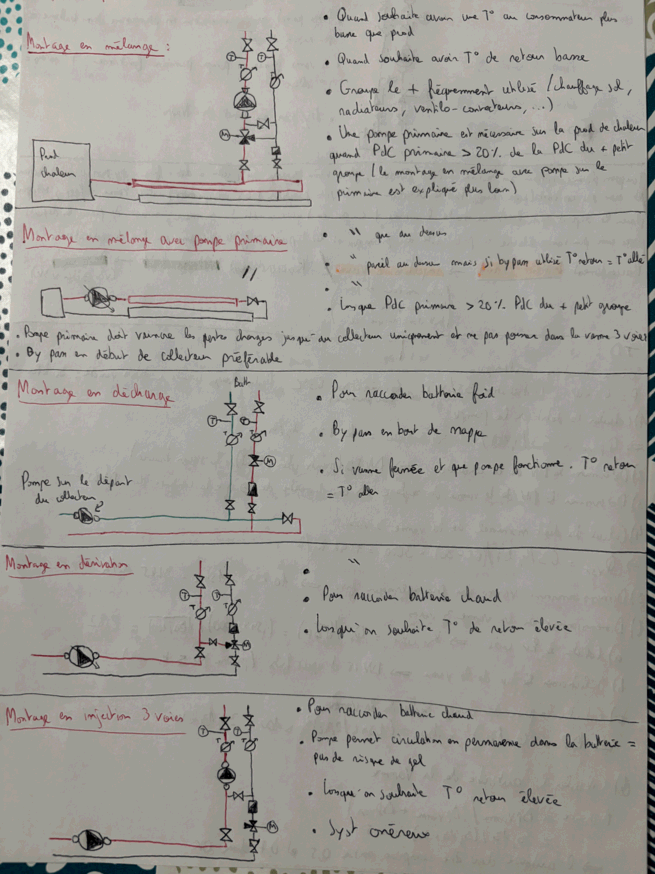 Montage en mélange :
• Quand souhaite avoir une T° au consommateur plus
basse que prod
• Quand souhaite avoir T° de retour basse
• Groupe le + fréquemment utilisé (chauffage sol,
radiateurs, ventilo-convecteurs, ...)
• Une pompe primaire est nécessaire sur la prod de chaleur
quand PdC primaire > 20% de la PdC du + petit
groupe (le montage en mélange avec pompe sur le
primaire est expliqué plus loin)
Prod
chaleur
T
T
M
Montage en mélange avec pompe primaire
• " que au dessus
• " pareil au dessus mais si by pass utilisé T° retour = T° aller
• "
• Lorsque PdC primaire > 20% PdC du + petit groupe
• Pompe primaire doit vaincre les pertes charges jusqu'au collecteur uniquement et ne pas pousser dans la vanne 3 voies
• By pass en début de collecteur préférable
Montage en décharge
Batt
• Pour raccorder batterie froid
• By pass en bout de nappe
• Si vanne fermée et que pompe fonctionne. T° retour
= T° aller
Pompe sur le départ
du collecteur
T
M
Montage en dérivation
• "
• Pour raccorder batterie chaud
• Lorsqu'on souhaite T° de retour élevée
T
T
M
Montage en injection 3 voies
• Pour raccorder batterie chaud
• Pompe permet circulation en permanence dans la batterie =
pas de risque de gel
• Lorsqu'on souhaite T° retour élevée
• Syst onéreux
T
T
M